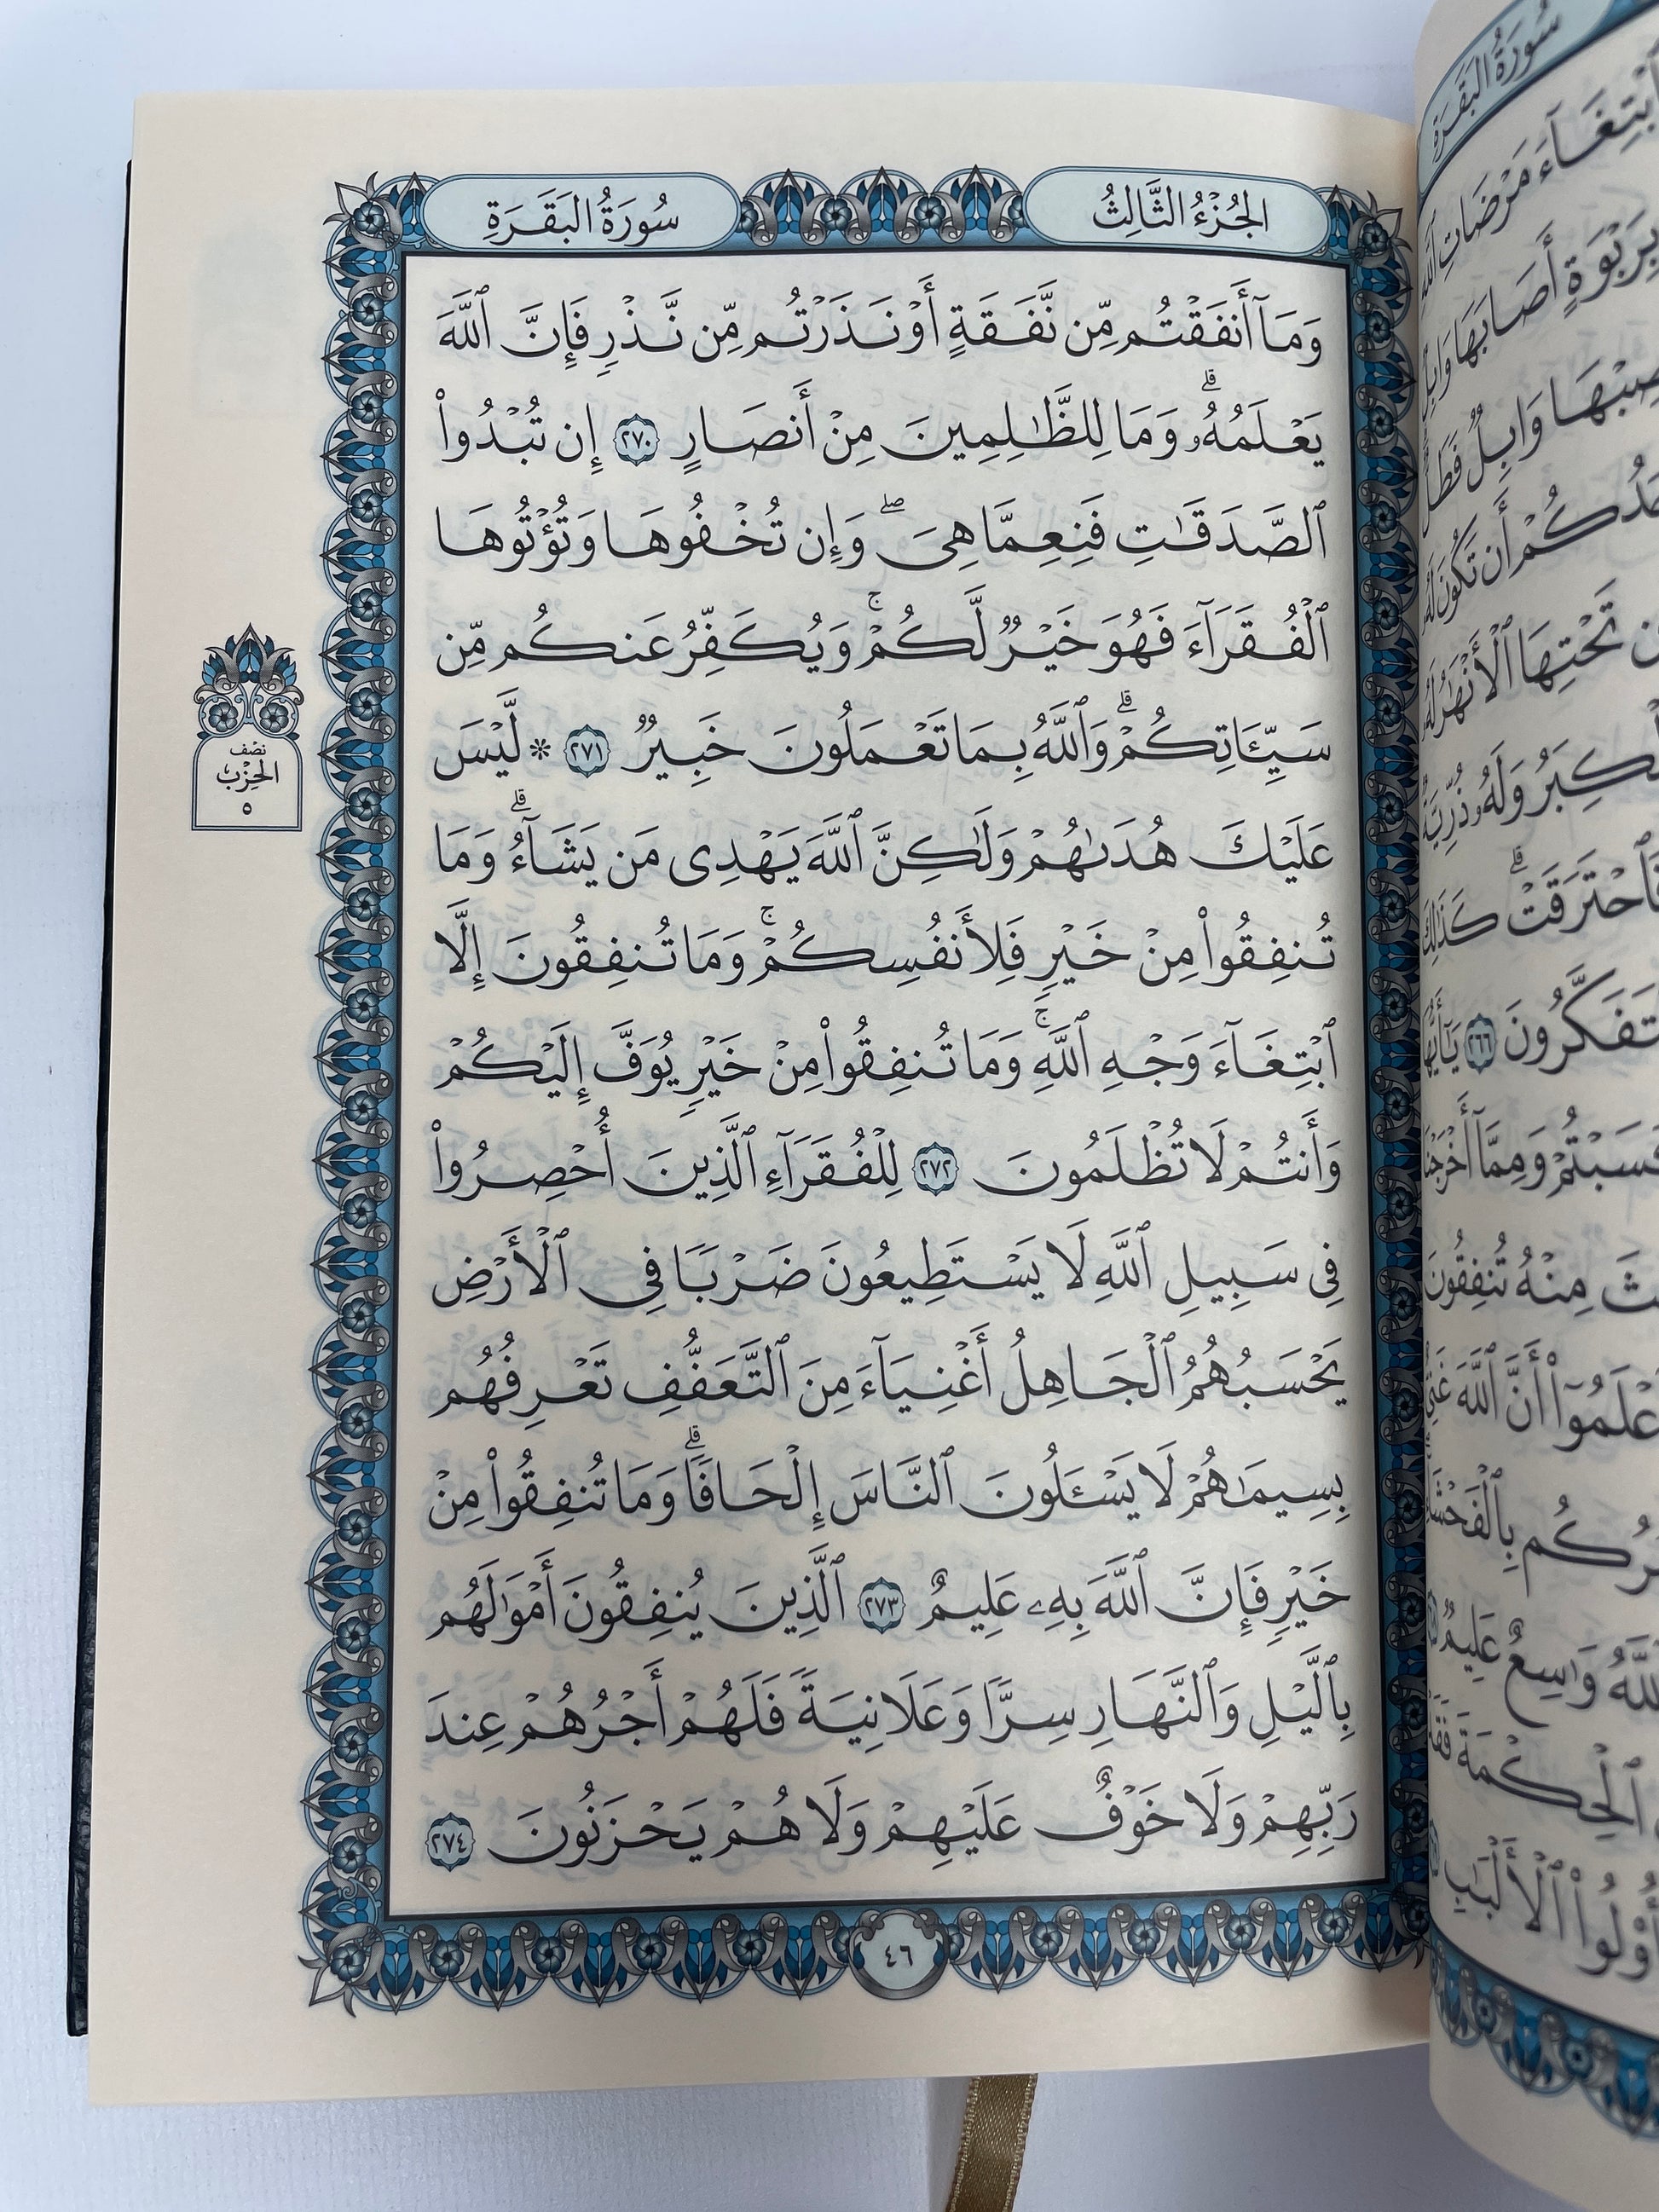 الجُزْءُ الثَّالِثُ
سُورَةُ البَقَرَةِ
وَمَآ أَنفَقْتُم مِّن نَّفَقَةٍ أَوْ نَذَرْتُم مِّن نَّذْرٍ فَإِنَّ ٱللَّهَ
يَعْلَمُهُۥ ۗ وَمَا لِلظَّـٰلِمِينَ مِنْ أَنصَارٍ ٢٧٠ إِن تُبْدُوا۟
ٱلصَّدَقَـٰتِ فَنِعِمَّا هِىَ ۖ وَإِن تُخْفُوهَا وَتُؤْتُوهَا
ٱلْفُقَرَآءَ فَهُوَ خَيْرٌ لَّكُمْ ۚ وَيُكَفِّرُ عَنكُم مِّن
سَيِّـَٔاتِكُمْ ۗ وَٱللَّهُ بِمَا تَعْمَلُونَ خَبِيرٌ ٢٧١ * لَّيْسَ
عَلَيْكَ هُدَىٰهُمْ وَلَـٰكِنَّ ٱللَّهَ يَهْدِى مَن يَشَآءُ ۗ وَمَا
تُنفِقُوا۟ مِنْ خَيْرٍ فَلِأَنفُسِكُمْ ۚ وَمَا تُنفِقُونَ إِلَّا
ٱبْتِغَآءَ وَجْهِ ٱللَّهِ ۚ وَمَا تُنفِقُوا۟ مِنْ خَيْرٍ يُوَفَّ إِلَيْكُمْ
وَأَنتُمْ لَا تُظْلَمُونَ ٢٧٢ لِلْفُقَرَآءِ ٱلَّذِينَ أُحْصِرُوا۟
فِى سَبِيلِ ٱللَّهِ لَا يَسْتَطِيعُونَ ضَرْبًا فِى ٱلْأَرْضِ
يَحْسَبُهُمُ ٱلْجَاهِلُ أَغْنِيَآءَ مِنَ ٱلتَّعَفُّفِ تَعْرِفُهُم
بِسِيمَـٰهُمْ لَا يَسْـَٔلُونَ ٱلنَّاسَ إِلْحَافًا ۗ وَمَا تُنفِقُوا۟ مِنْ
خَيْرٍ فَإِنَّ ٱللَّهَ بِهِۦ عَلِيمٌ ٢٧٣ ٱلَّذِينَ يُنفِقُونَ أَمْوَٰلَهُم
بِٱلَّيْلِ وَٱلنَّهَارِ سِرًّا وَعَلَانِيَةً فَلَهُمْ أَجْرُهُمْ عِندَ
رَبِّهِمْ وَلَا خَوْفٌ عَلَيْهِمْ وَلَا هُمْ يَحْزَنُونَ ٢٧٤
نصف
الحِزْب
٥
٤٦
سُورَةُ البَقَرَةِ
ٱبْتِغَآءَ مَرْضَاتِ ٱللَّهِ
بِرَبْوَةٍ أَصَابَهَا وَابِلٌ
وَابِلٌ فَطَلٌّ
أَن تَكُونَ لَهُۥ
تَحْتِهَا ٱلْأَنْهَـٰرُ لَهُۥ
وَلَهُۥ ذُرِّيَّةٌ
فَٱحْتَرَقَتْ ۗ كَذَٰلِكَ
٢٦٦ يَـٰٓأَيُّهَا
وَمِمَّآ أَخْرَجْنَا
مِنْهُ تُنفِقُونَ
أَنَّ ٱللَّهَ غَنِىٌّ
بِٱلْفَحْشَآءِ
وَٰسِعٌ عَلِيمٌ
ٱلْحِكْمَةَ فَقَدْ
أُو۟لُوا۟ ٱلْأَلْبَـٰبِ